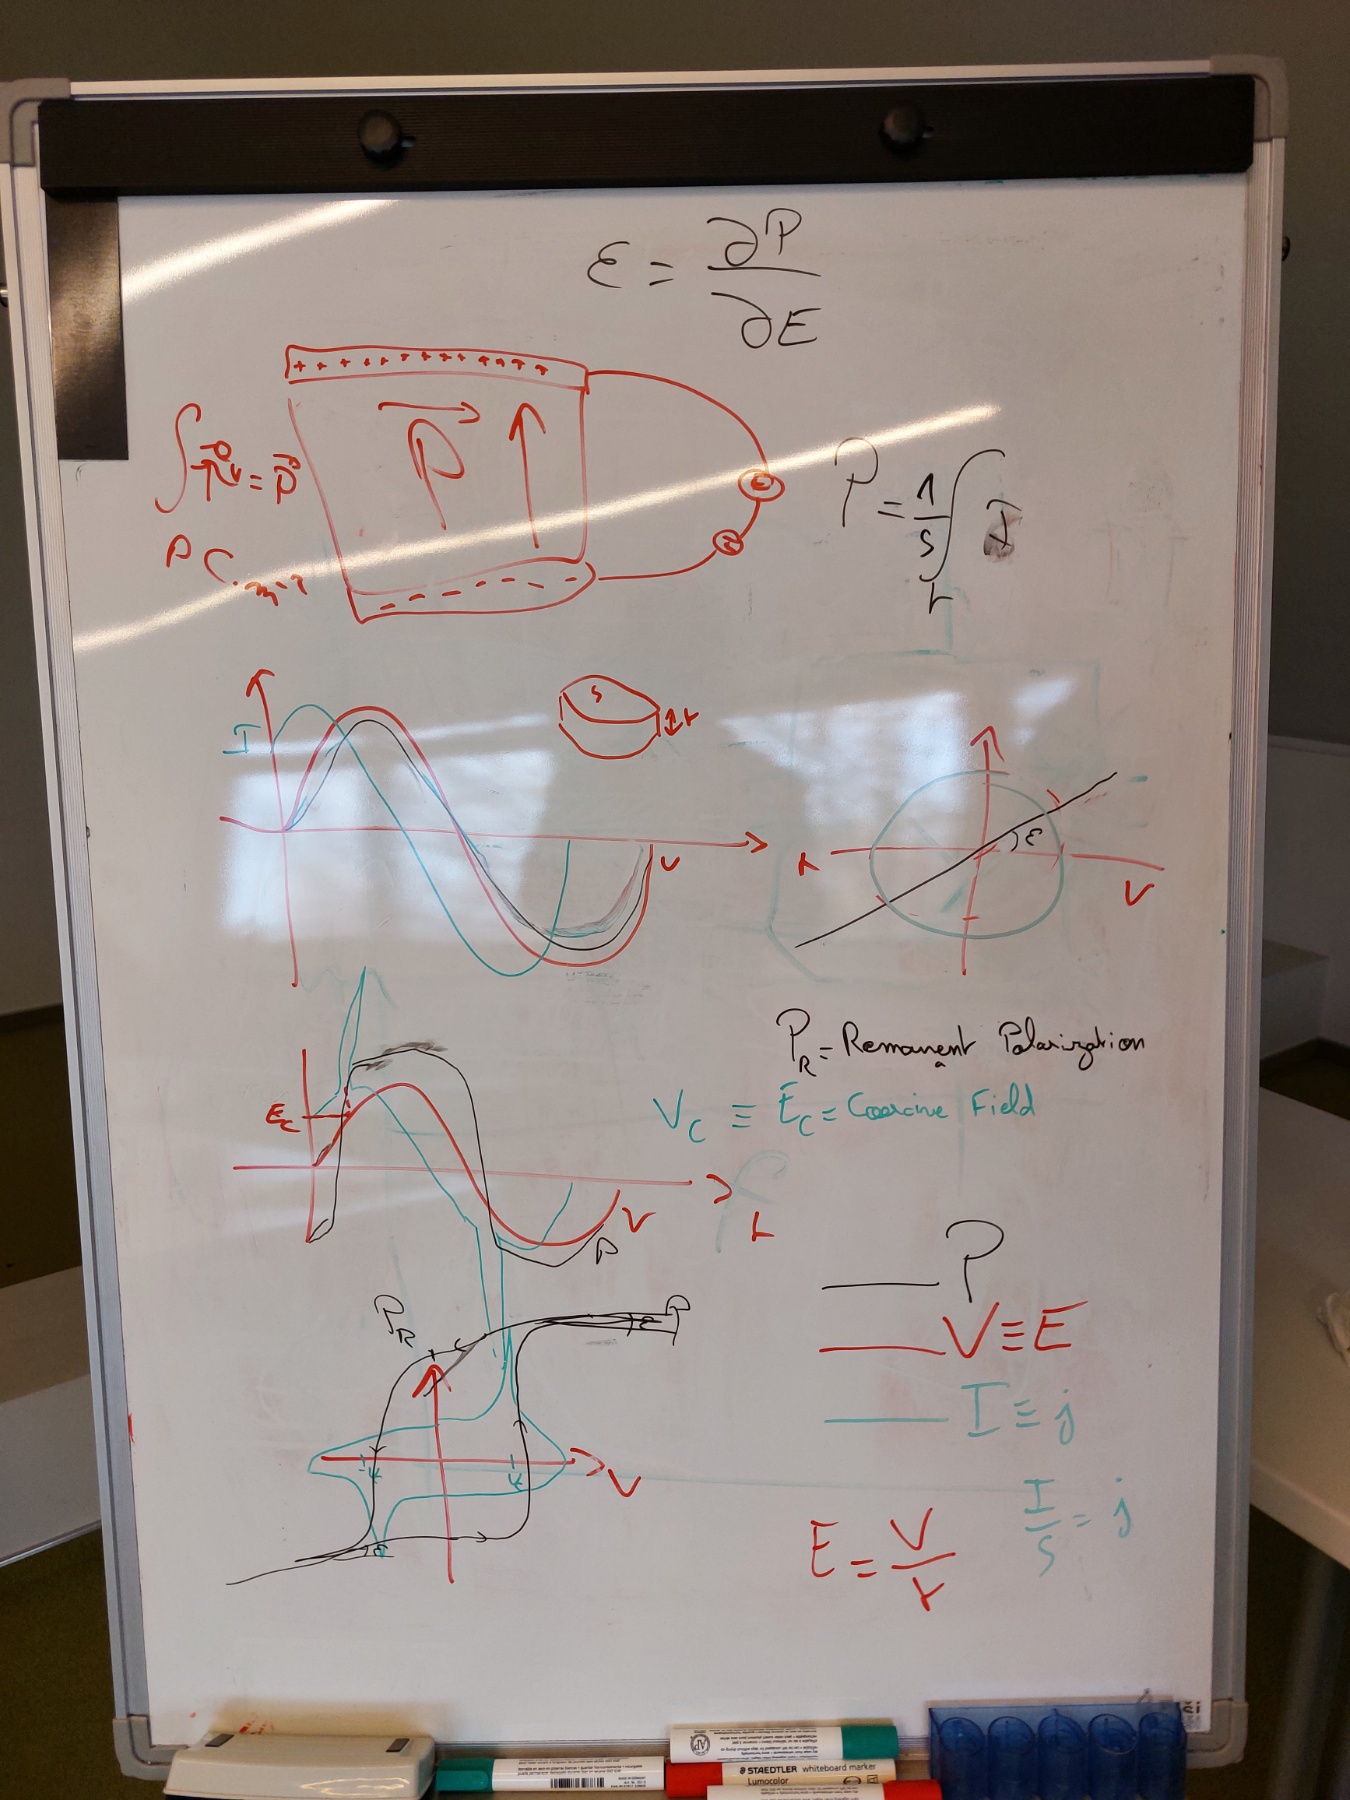 ε = ∂P
∂E
+ + + + + + + + + + + + +
P
∫ P
= P
P C.m⁻²
- - - - - - -
P = 1/S ∫ I
t
I
S
t
V
ε
V
P_R = Remanent Polarization
a
V_C ≡ E_C = Coercive Field
E_C
V
t
P
P
P_R
P
ε
V ≡ E
I ≡ j
V
ε
I/S = j
E = V/t
STAEDTLER whiteboard marker
Lumocolor